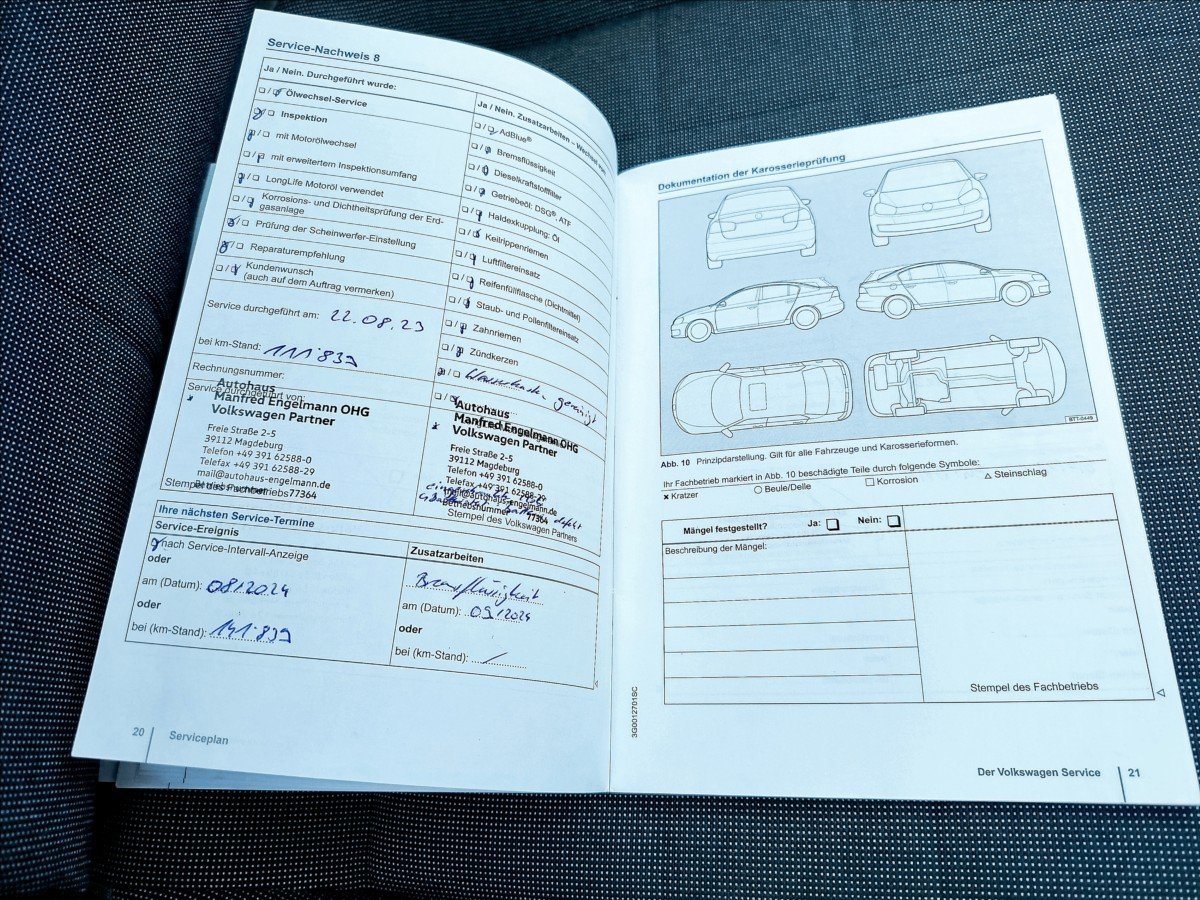 Service-Nachweis 8
Ja / Nein. Durchgeführt wurde:
Ölwechsel-Service
Inspektion
mit Motorölwechsel
mit erweitertem Inspektionsumfang
LongLife Motoröl verwendet
Korrosions- und Dichtheitsprüfung der Erd-
gasanlage
Prüfung der Scheinwerfer-Einstellung
Reparaturempfehlung
Kundenwunsch
(auch auf dem Auftrag vermerken)
Service durchgeführt am: 22.08.23
bei km-Stand: 111.839
Rechnungsnummer:
Service durchgeführt von:
Autohaus
Manfred Engelmann OHG
Volkswagen Partner
Freie Straße 2-5
39112 Magdeburg
Telefon +49 391 62588-0
Telefax +49 391 62588-29
mail@autohaus-engelmann.de
Betriebsnummer 77364
Stempel des Fachbetriebs
Ja / Nein. Zusatzarbeiten – Wechsel
AdBlue®
Bremsflüssigkeit
Dieselkraftstofffilter
Getriebeöl: DSG®, ATF
Haldexkupplung: Öl
Keilrippenriemen
Luftfiltereinsatz
Reifenfüllflasche (Dichtmittel)
Staub- und Pollenfiltereinsatz
Zahnriemen
Zündkerzen
gereinigt
Autohaus
Manfred Engelmann OHG
Volkswagen Partner
Freie Straße 2-5
39112 Magdeburg
Telefon +49 391 62588-0
Telefax +49 391 62588-29
mail@autohaus-engelmann.de
Betriebsnummer 77364
defekt
Stempel des Volkswagen Partners
Ihre nächsten Service-Termine
Service-Ereignis
nach Service-Intervall-Anzeige
oder
am (Datum): 08/2024
oder
bei (km-Stand): 141.839
Zusatzarbeiten
Bremsflüssigkeit
am (Datum): 09/2024
oder
bei (km-Stand): /
20
Serviceplan
Dokumentation der Karosserieprüfung
BTT-0449
Abb. 10 Prinzipdarstellung. Gilt für alle Fahrzeuge und Karosserieformen.
Ihr Fachbetrieb markiert in Abb. 10 beschädigte Teile durch folgende Symbole:
× Kratzer ○ Beule/Delle □ Korrosion △ Steinschlag
Mängel festgestellt? Ja: □ Nein: □
Beschreibung der Mängel:
Stempel des Fachbetriebs
3G0012701SC
Der Volkswagen Service 21